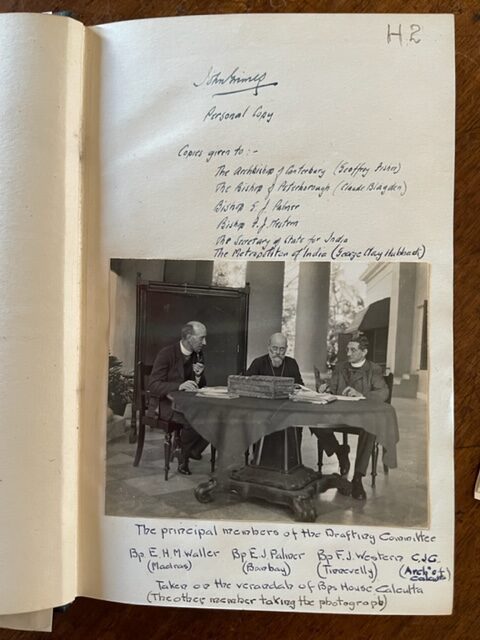 H2
John Grimes
Personal Copy
Copies given to :-
The Archbishop of Canterbury (Geoffrey Fisher)
The Bishop of Peterborough (Claude Blagden)
Bishop E. J. Palmer
Bishop F. J. Western
The Secretary of State for India
The Metropolitan of India (George Clay Hubback)
The principal members of the Drafting Committee
Bp E. H. M. Waller Bp E. J. Palmer Bp F. J. Western C.J.G.
(Madras) (Bombay) (Tinnevelly) (Arch' of Calcutta)
Taken on the verandah of Bps House Calcutta
(The other member taking the photograph)